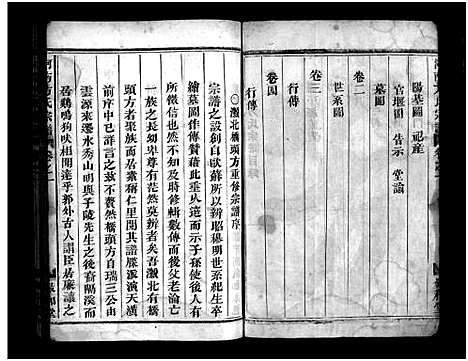 陽基圖 祀產
官堰圖 告示 堂諭
卷二
墓圖
世系圖
卷三
行傳
卷四
行傳
澂北橋頭方重修宗譜序
宗譜之設創自歐蘇所以辨昭穆明世系紀生卒
繪墓圖作傳贊藉此垂久遠而示子孫使後人有
所徵信也然不及時修輯數傳而後父老淪亡
一族之長幼卑尊有茫然莫辨者矣吾澂北有橋
頭方聚族而居素稱仁里閱其譜牒派演天潢
前序中已詳言之茲不復贅然橋頭方自瑞三公由
雲源來遷水秀山明與子陵先生之後裔隔溪而
居雞鳴狗吠相聞達乎郭外古人謂臣居廉讓之
河南方氏宗譜